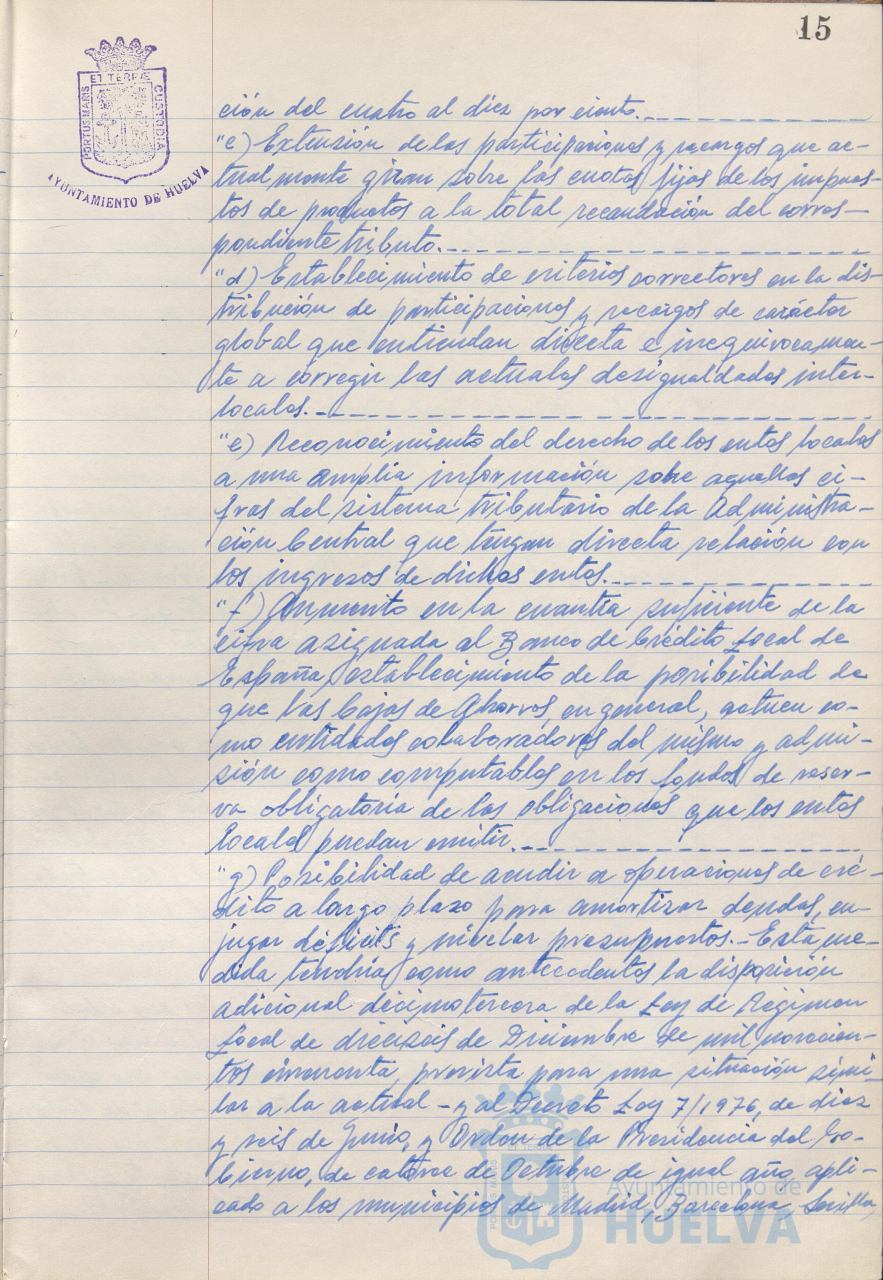 15
ET TERRÆ
PORTUS MARIS
CUSTODIA
AYUNTAMIENTO DE HUELVA
ción del cuatro al diez por ciento.
"c) Extensión de las participaciones y recargos que ac-
tualmente giran sobre las cuotas fijas de los impues-
tos de productos a la total recaudación del corres-
pondiente tributo.
"d) Establecimiento de criterios correctores en la dis-
tribución de participaciones y recargos de carácter
global que entiendan directa e inequivocamen-
te a corregir las actuales desigualdades inter-
locales.
"e) Reconocimiento del derecho de los entes locales
a una amplia información sobre aquellas ci-
fras del sistema tributario de la Administra-
ción Central que tengan directa relación con
los ingresos de dichos entes.
"f) Aumento en la cuantía suficiente de la
cifra asignada al Banco de Crédito Local de
España, establecimiento de la posibilidad de
que las Cajas de Ahorros, en general, actuen co-
mo entidades colaboradores del mismo y admi-
sión como computables en los fondos de reser-
va obligatoria de las obligaciones que los entes
locales puedan emitir.
"g) Posibilidad de acudir a operaciones de cré-
dito a largo plazo para amortizar deudas, en-
jugar déficits y nivelar presupuestos.- Esta me-
dida tendría como antecedentes la disposición
adicional décimotercera de la Ley de Régimen
Local de dieciseis de Diciembre de mil novecien-
tos cincuenta, prevista para una situación simi-
lar a la actual - y al Decreto Ley 7/1976, de diez
y seis de Junio, y Orden de la Presidencia del Go-
bierno, de catorce de Octubre de igual año, apli-
cado a los municipios de Madrid, Barcelona, Sevilla,
Ayuntamiento de
HUELVA